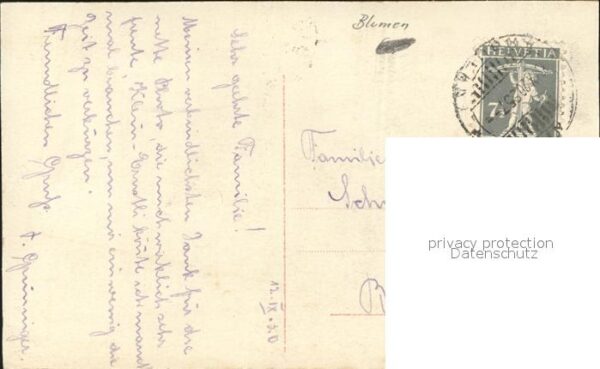 Blumen
HELVETIA
7½
Sehr geehrte Familie!
Meinen verbindlichsten Dank für die
nette Photo, die mich wirklich sehr
freute, Klein-Ernstli könnte ich manch
mal brauchen, um mir ein wenig die
Zeit zu verkürzen.
Freundlichen Gruß
Grüninger.
12. IX. 20
Familie
privacy protection
Datenschutz